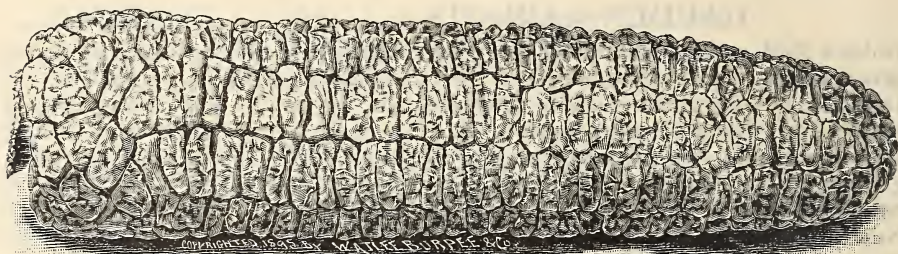 COPYRIGHTED, 1895, BY W. ATLEE BURPEE & Co.